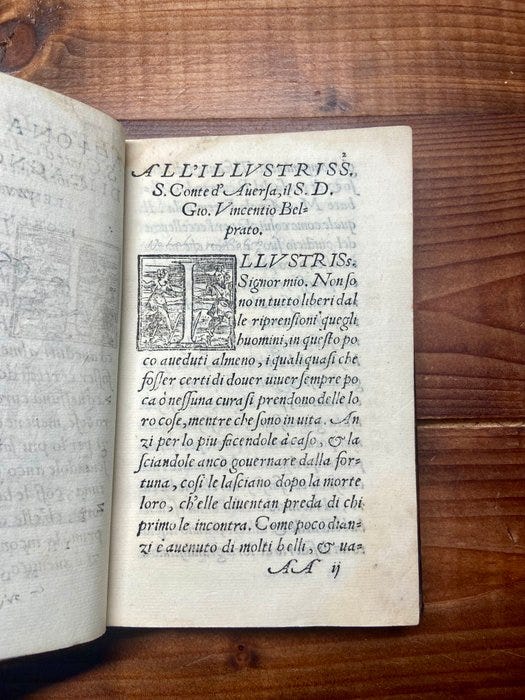 2
ALL'ILLVSTRISS.
S. Conte d'Auersa, il S. D.
Gio. Vincentio Bel-
prato.
ILLVSTRISS.
Signor mio. Non so
no in tutto liberi dal
le riprensioni quegli
huomini, in questo po
co aueduti almeno, i quali quasi che
fosser certi di douer uiuer sempre po
ca ò nessuna cura si prendono delle lo
ro cose, mentre che sono in uita. An
zi per lo piu facendole à caso, & la
sciandole anco gouernare dalla for-
tuna, cosi le lasciano dopo la morte
loro, ch'elle diuentan preda di chi
primo le incontra. Come poco dian-
zi è auenuto di molti belli, & ua-
AA ij